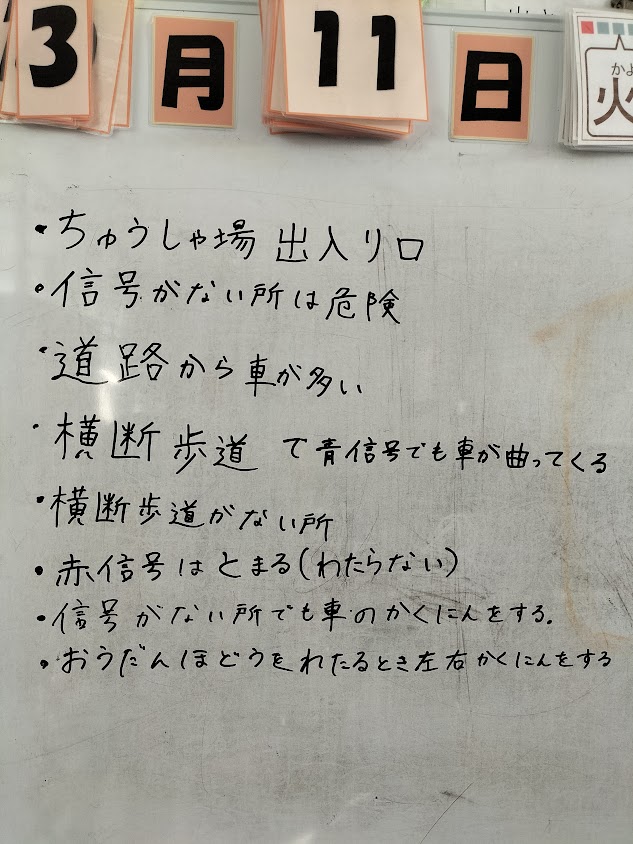 3月11日
かよ
火
・ちゅうしゃ場 出入り口
・信号がない所は危険
・道路から車が多い
・横断歩道 で青信号でも車が曲ってくる
・横断歩道がない所
・赤信号はとまる(わたらない)
・信号がない所でも車のかくにんをする.
・おうだんほどうをわたるとき左右かくにんをする